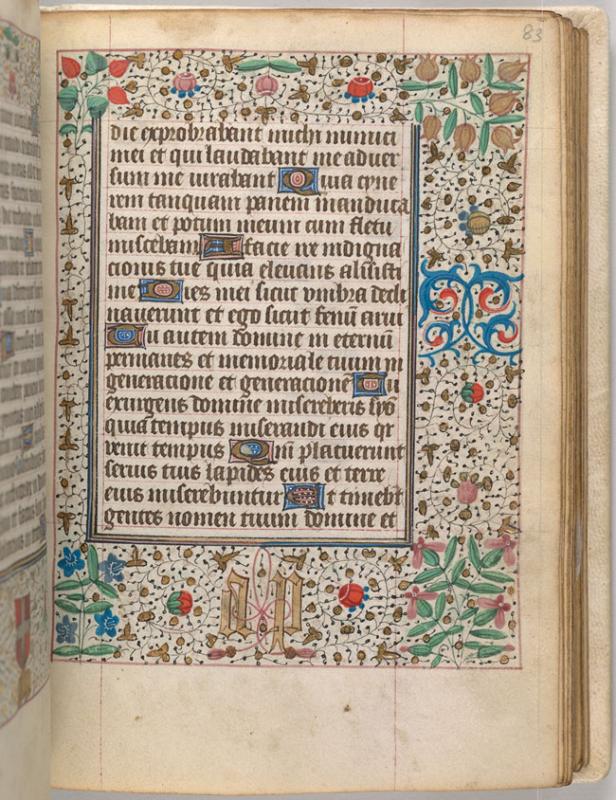 83
die exprobrabant michi inimici
mei et qui laudabant me aduer
sum me iurabant Quia cyne
rem tanquam panem manduca
bam et potum meum cum fletu
miscebam A facie ire indigna
cionis tue quia eleuans allisisti
me Dies mei sicut vmbra decli
nauerunt et ego sicut fenū arui
Tu autem domine in eternū
permanes et memoriale tuum in
generacione et generacione Tu
exurgens domine misereberis syo
quia tempus miserandi eius qr
venit tempus Qm̄ placuerunt
seruis tuis lapides eius et terre
eius miserebuntur Et timebt
gentes nomen tuum domine et
a p